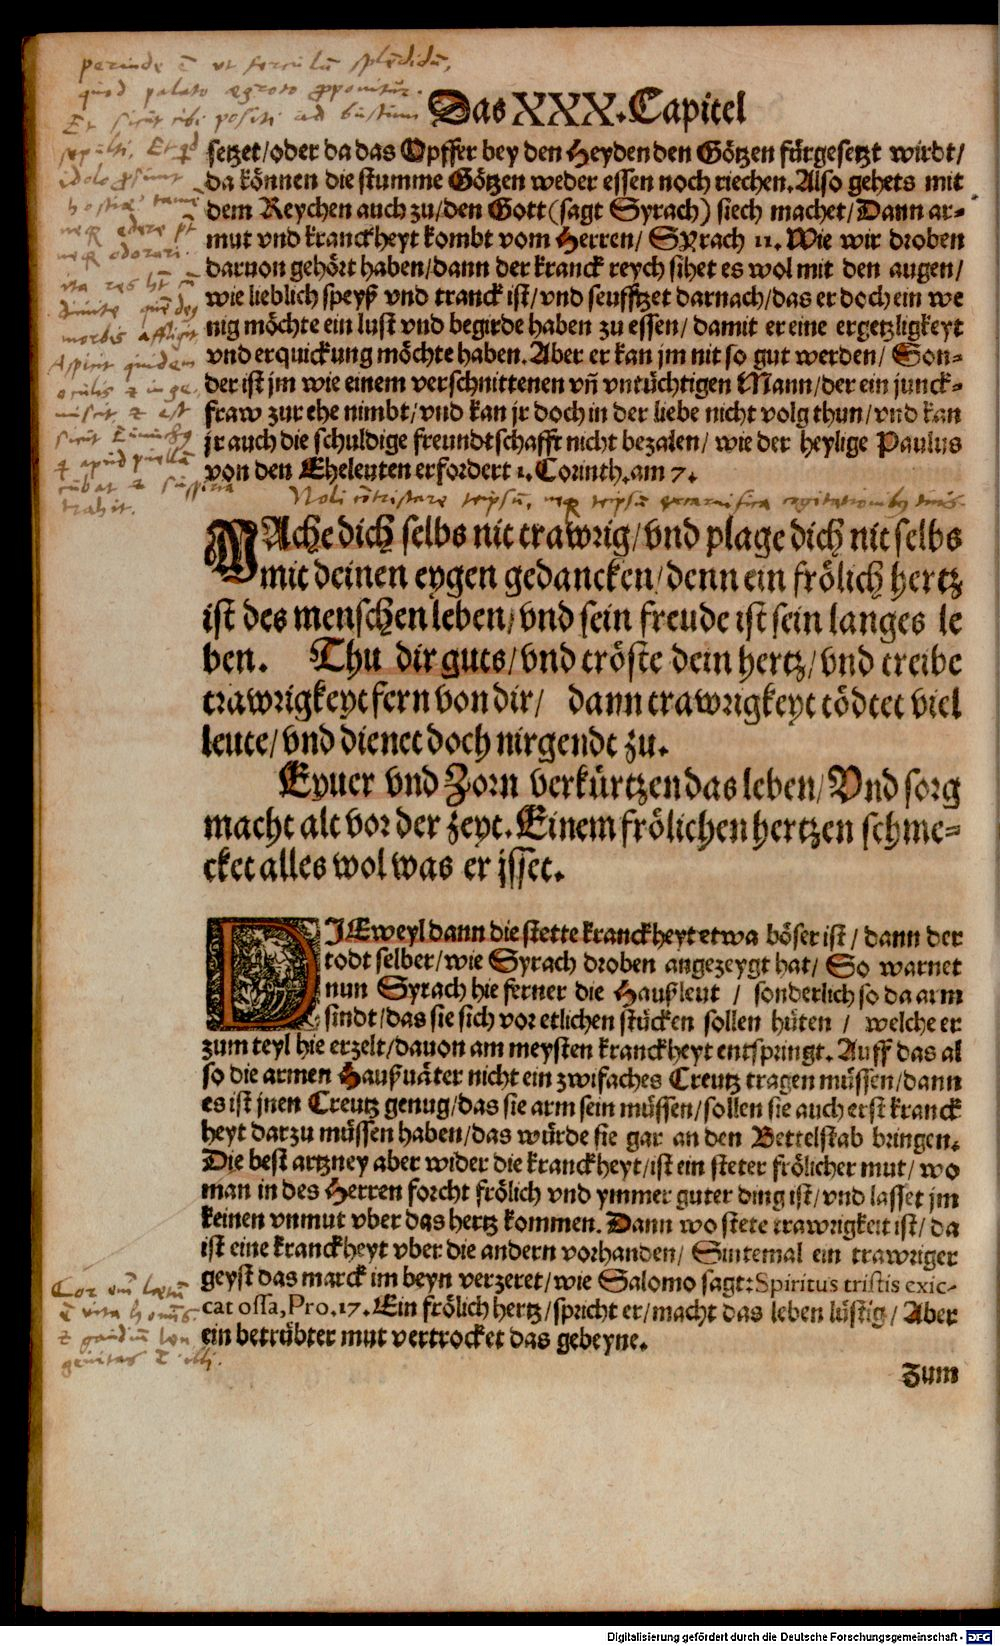 perinde ē ut ferculū splēdidū,
quod palato egroto p̱ponitur.
Et sicut cibi positi ad bustum
sepulti, Et qd
idolo p̱sunt
hostiae tamē
neqꝫ edere pn̄t
neqꝫ odorari.
ita res ht̄ cū
divite quē deꝰ
morbis affligit
Aspicit quidem
oculis & inge-
miscit & est
sicut Eunuchꝰ
q̄ apud puellā
cubat & suspiria
trahit.
Das XXX. Capitel
setzet/oder da das Opffer bey den Heyden den Götzen fürgesetzt wirdt/
da können die stumme Götzen weder essen noch riechen. Also gehets mit
dem Reychen auch zu/den Gott (sagt Syrach) siech machet/Dann ar-
mut vnd kranckheyt kombt vom Herren/ Syrach 11. Wie wir droben
daruon gehört haben/dann der kranck reych sihet es wol mit den augen/
wie lieblich speyß vnd tranck ist/vnd seufftzet darnach/das er doch ein we
nig möchte ein lust vnd begirde haben zu essen/ damit er eine ergetzligkeyt
vnd erquickung möchte haben. Aber er kan jm nit so gut werden/ Son-
der ist jm wie einem verschnittenen vñ vntüchtigen Mann/der ein junck-
fraw zur ehe nimbt/vnd kan jr doch in der liebe nicht volg thun/vnd kan
jr auch die schuldige freundtschafft nicht bezalen/ wie der heylige Paulus
von den Eheleuten erfordert 1. Corinth. am 7.
Noli cōtristare teipsū, neqꝫ teipsū excarnifica cogitationibꝰ tuis.
MAche dich selbs nit trawrig/vnd plage dich nit selbs
mit deinen eygen gedancken/denn ein frölich hertz
ist des menschen leben/vnd sein freude ist sein langes le
ben. Thu dir guts/vnd tröste dein hertz/vnd treibe
trawrigkeyt fern von dir/ dann trawrigkeyt tödtet viel
leute/vnd dienet doch nirgendt zu.
Eyuer vnd Zorn verkürtzen das leben/Vnd sorg
macht alt vor der zeyt. Einem frölichen hertzen schme-
cket alles wol was er jsset.
DIEweyl dann die stette kranckheyt etwa böser ist/ dann der
todt selber/wie Syrach droben angezeygt hat/ So warnet
nun Syrach hie ferner die Haußleut / sonderlich so da arm
sindt/das sie sich vor etlichen stücken sollen hüten / welche er
zum teyl hie erzelt/dauon am meysten kranckheyt entspringt. Auff das al
so die armen Haußuäter nicht ein zwifaches Creutz tragen müssen/dann
es ist jnen Creutz genug/das sie arm sein müssen/sollen sie auch erst kranck
heyt darzu müssen haben/das würde sie gar an den Bettelstab bringen.
Die best artzney aber wider die kranckheyt/ist ein steter frölicher mut/ wo
man in des Herren forcht frölich vnd ymmer guter ding ist/vnd lasset jm
keinen vnmut vber das hertz kommen. Dann wo stete trawrigkeit ist/ da
ist eine kranckheyt vber die andern vorhanden/ Sintemal ein trawriger
geyst das marck im beyn verzeret/wie Salomo sagt: Spiritus tristis exic-
cat ossa, Pro. 17. Ein frölich hertz/spricht er/macht das leben lüstig/ Aber
ein betrübter mut vertrocket das gebeyne.
Cor eni᷉ laetū
ē vita homīs
& gaudiū lon
gevitas ē illi.
zum
Digitalisierung gefördert durch die Deutsche Forschungsgemeinschaft - DFG